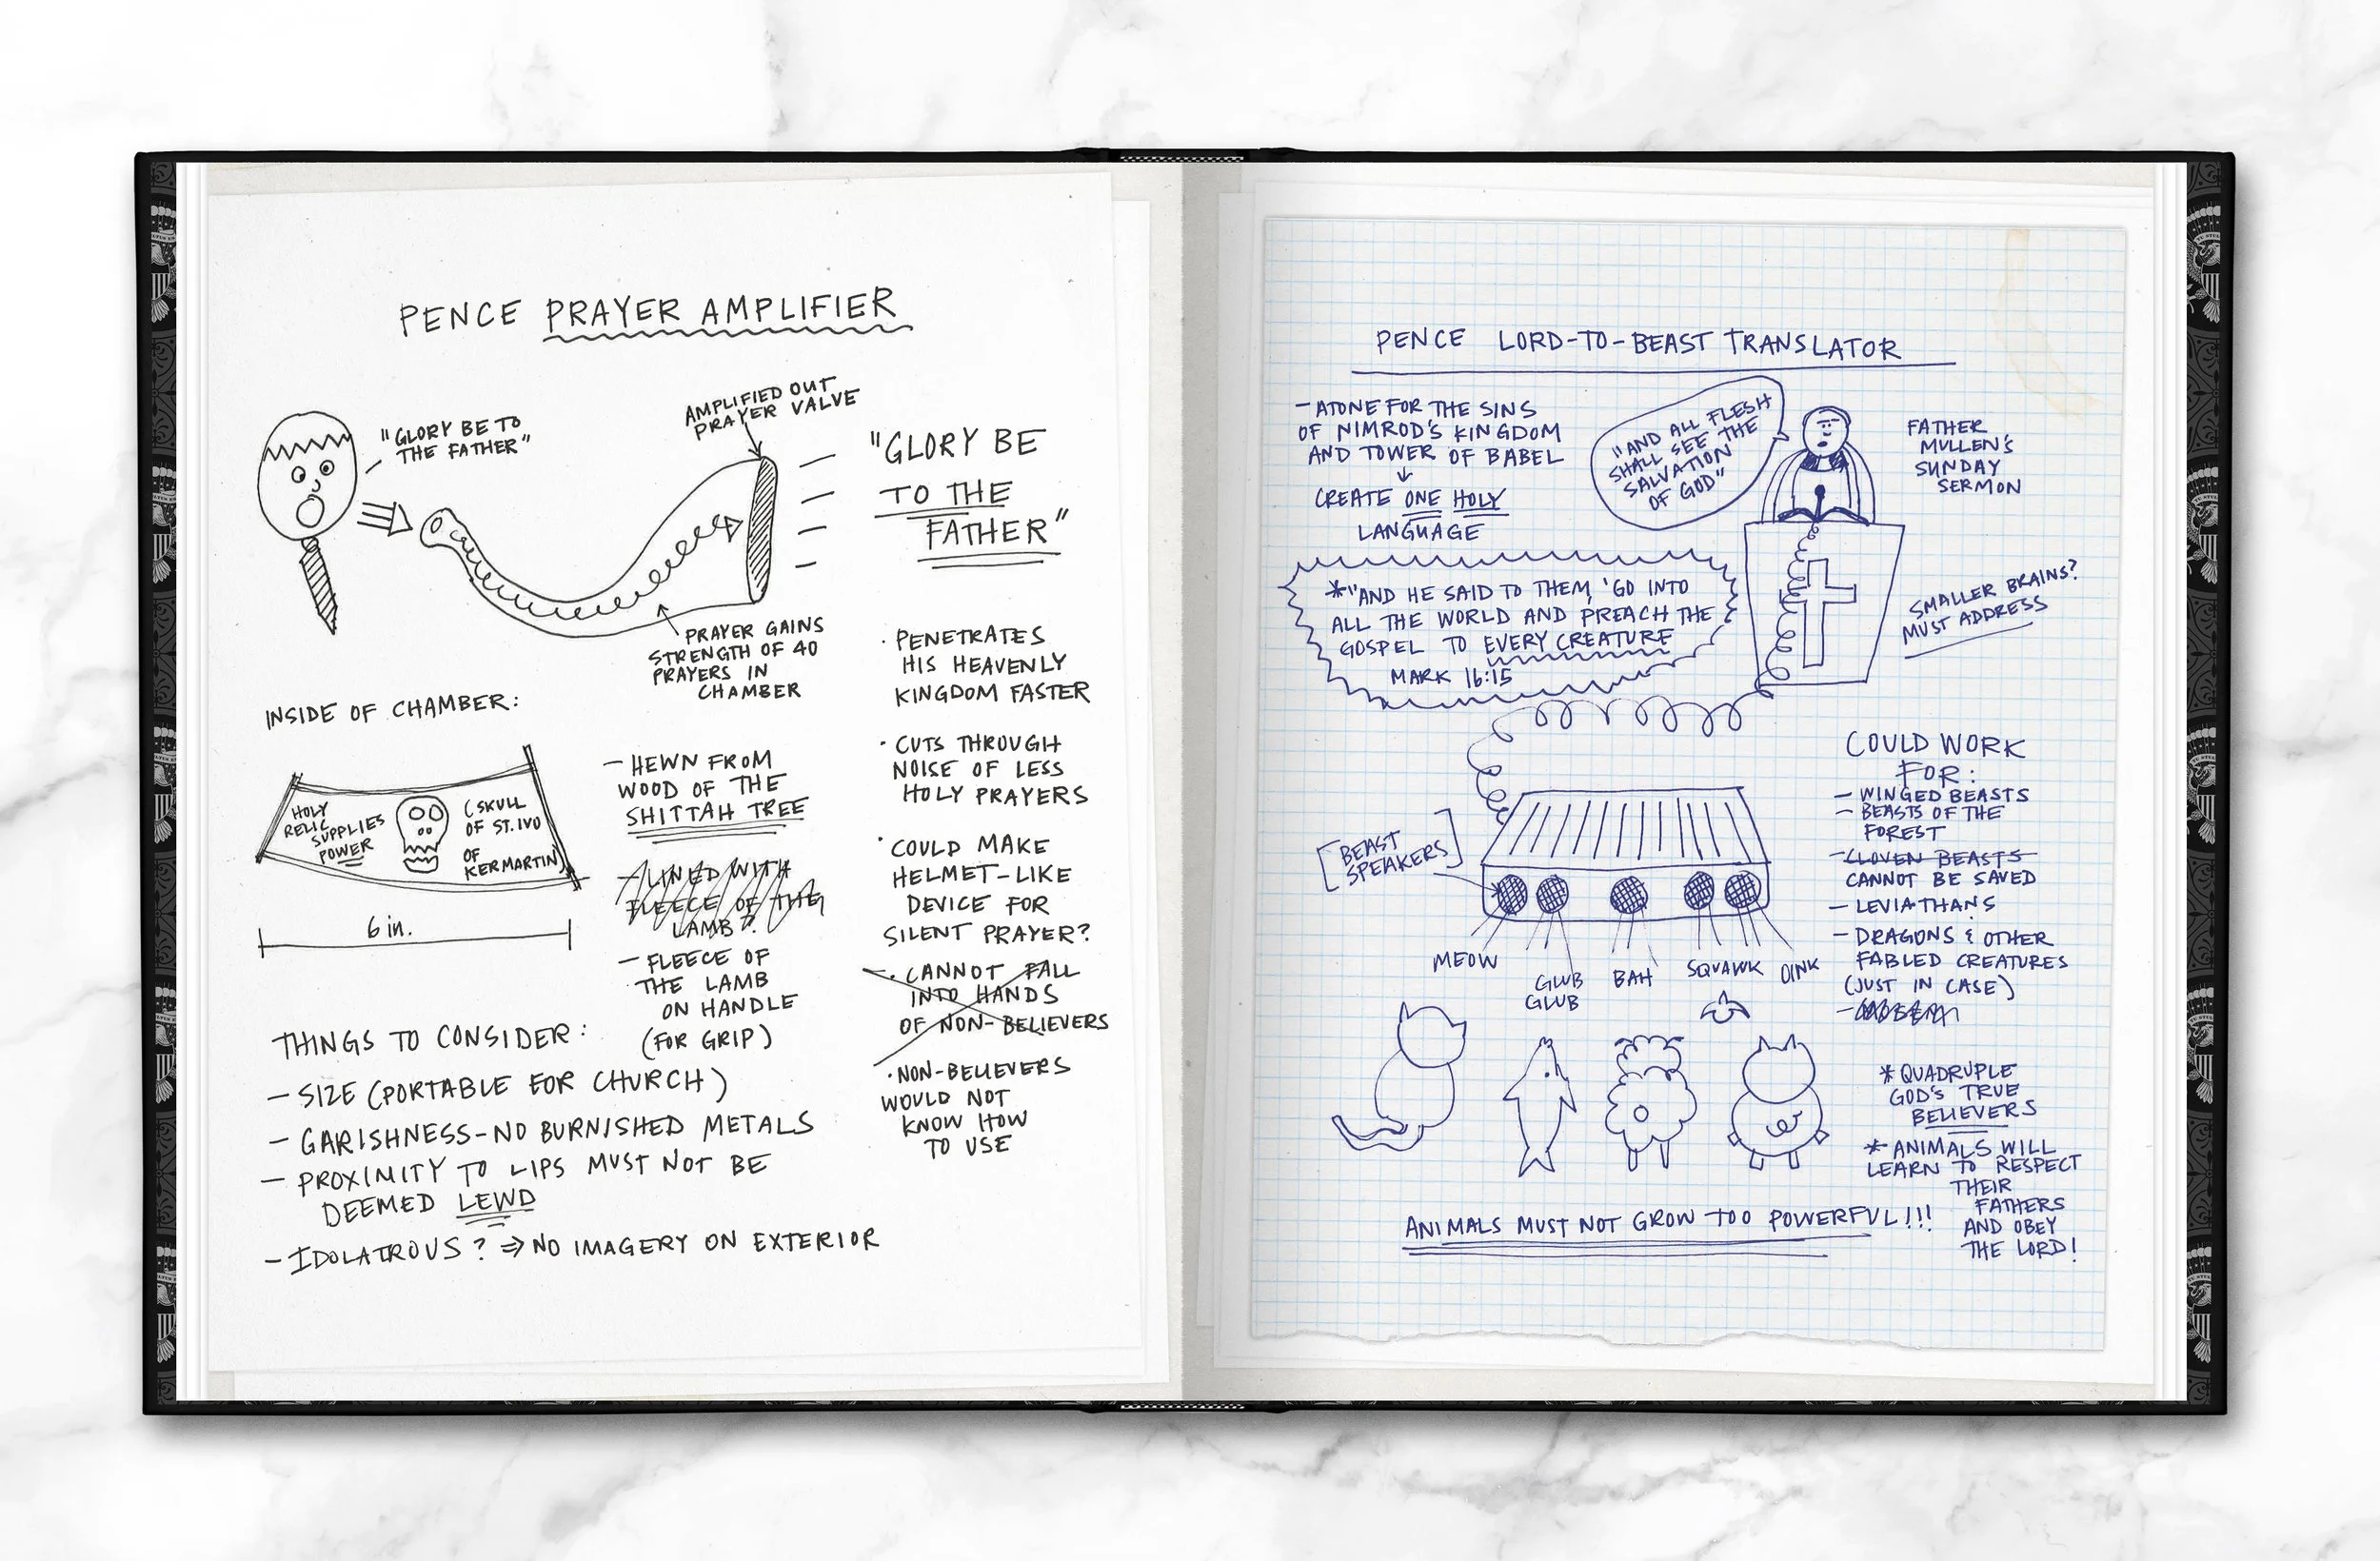 PENCE PRAYER AMPLIFIER
"GLORY BE TO
THE FATHER"
AMPLIFIED OUT
PRAYER VALVE
"GLORY BE
TO THE
FATHER"
PRAYER GAINS
STRENGTH OF 40
PRAYERS IN
CHAMBER
INSIDE OF CHAMBER:
HOLY
RELIC
SUPPLIES
POWER
(SKULL
OF ST. IVO
OF
KERMARTIN)
6 in.
- HEWN FROM
WOOD OF THE
SHITTAH TREE
- LINED WITH
FLEECE OF THE
LAMB?
- FLEECE OF
THE LAMB
ON HANDLE
(FOR GRIP)
· PENETRATES
HIS HEAVENLY
KINGDOM FASTER
· CUTS THROUGH
NOISE OF LESS
HOLY PRAYERS
· COULD MAKE
HELMET-LIKE
DEVICE FOR
SILENT PRAYER?
· CANNOT FALL
INTO HANDS
OF NON-BELIEVERS
· NON-BELIEVERS
WOULD NOT
KNOW HOW
TO USE
THINGS TO CONSIDER:
- SIZE (PORTABLE FOR CHURCH)
- GARISHNESS-NO BURNISHED METALS
- PROXIMITY TO LIPS MUST NOT BE
DEEMED LEWD
- IDOLATROUS? ⇒ NO IMAGERY ON EXTERIOR
PENCE LORD-TO-BEAST TRANSLATOR
- ATONE FOR THE SINS
OF NIMROD'S KINGDOM
AND TOWER OF BABEL
↓
CREATE ONE HOLY
LANGUAGE
"AND ALL FLESH
SHALL SEE THE
SALVATION
OF GOD"
FATHER
MULLEN'S
SUNDAY
SERMON
*"AND HE SAID TO THEM, 'GO INTO
ALL THE WORLD AND PREACH THE
GOSPEL TO EVERY CREATURE
MARK 16:15
SMALLER BRAINS?
MUST ADDRESS
[BEAST
SPEAKERS]
MEOW
GLUB
GLUB
BAH
SQUAWK
OINK
COULD WORK
FOR:
- WINGED BEASTS
- BEASTS OF THE
FOREST
- CLOVEN BEASTS
CANNOT BE SAVED
- LEVIATHANS
- DRAGONS & OTHER
FABLED CREATURES
(JUST IN CASE)
* QUADRUPLE
GOD'S TRUE
BELIEVERS
* ANIMALS WILL
LEARN TO RESPECT
THEIR
FATHERS
AND OBEY
THE LORD!
ANIMALS MUST NOT GROW TOO POWERFUL!!!